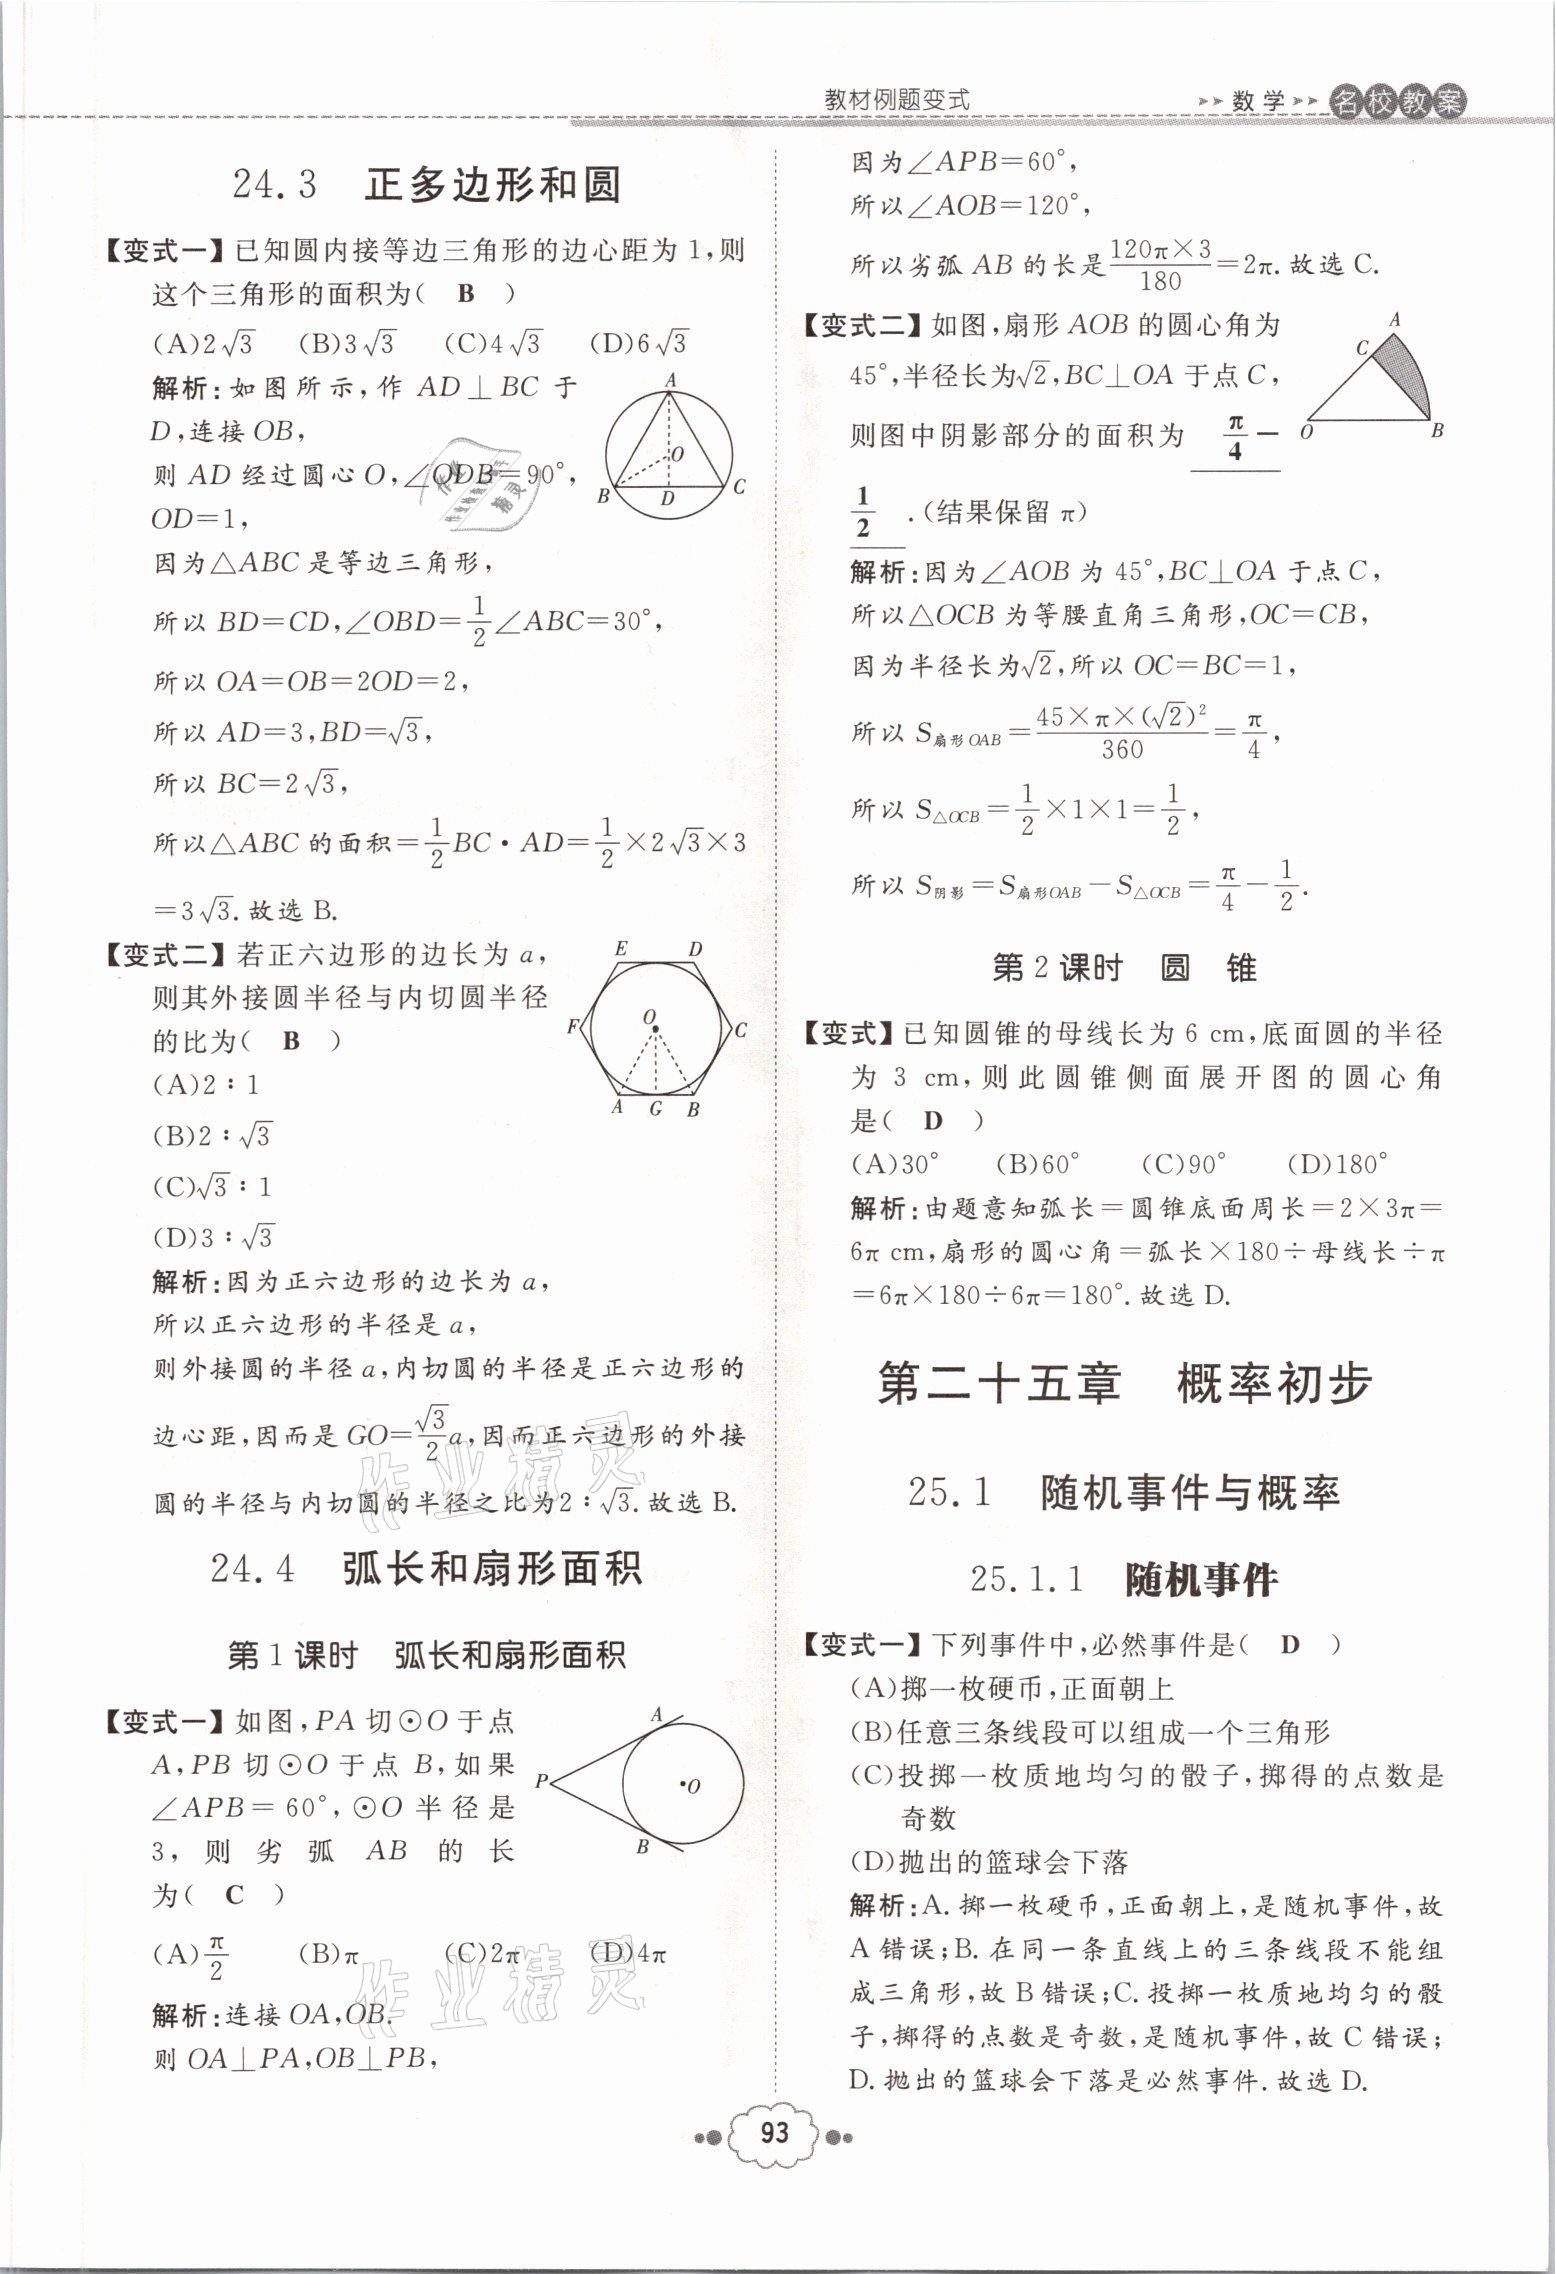 教材例题变式
数学
名校教案
24.3 正多边形和圆
【变式一】已知圆内接等边三角形的边心距为1,则
这个三角形的面积为( B )
(A)2√3 (B)3√3 (C)4√3 (D)6√3
解析:如图所示,作AD⊥BC于
D,连接OB,
则AD经过圆心O,∠ODB=90°,
OD=1,
A
O
B
D
C
因为△ABC是等边三角形,
所以BD=CD,∠OBD=1/2∠ABC=30°,
所以OA=OB=2OD=2,
所以AD=3,BD=√3,
所以BC=2√3,
所以△ABC的面积=1/2BC·AD=1/2×2√3×3
=3√3.故选B.
【变式二】若正六边形的边长为a,
则其外接圆半径与内切圆半径
的比为( B )
(A)2∶1
(B)2∶√3
(C)√3∶1
(D)3∶√3
E D
F O C
A G B
解析:因为正六边形的边长为a,
所以正六边形的半径是a,
则外接圆的半径a,内切圆的半径是正六边形的
边心距,因而是GO=√3/2a,因而正六边形的外接
圆的半径与内切圆的半径之比为2∶√3.故选B.
24.4 弧长和扇形面积
第1课时 弧长和扇形面积
【变式一】如图,PA切⊙O于点
A,PB切⊙O于点B,如果
∠APB=60°,⊙O半径是
3,则劣弧AB的长
为( C )
A
P
O
B
(A)π/2 (B)π (C)2π (D)4π
解析:连接OA,OB.
则OA⊥PA,OB⊥PB,
因为∠APB=60°,
所以∠AOB=120°,
所以劣弧AB的长是120π×3/180=2π.故选C.
【变式二】如图,扇形AOB的圆心角为
45°,半径长为√2,BC⊥OA于点C,
则图中阴影部分的面积为 π/4-
1/2 .(结果保留π)
A
C
O B
解析:因为∠AOB为45°,BC⊥OA于点C,
所以△OCB为等腰直角三角形,OC=CB,
因为半径长为√2,所以OC=BC=1,
所以S扇形OAB=45×π×(√2)²/360=π/4,
所以S△OCB=1/2×1×1=1/2,
所以S阴影=S扇形OAB-S△OCB=π/4-1/2.
第2课时 圆 锥
【变式】已知圆锥的母线长为6 cm,底面圆的半径
为3 cm,则此圆锥侧面展开图的圆心角
是( D )
(A)30° (B)60° (C)90° (D)180°
解析:由题意知弧长=圆锥底面周长=2×3π=
6π cm,扇形的圆心角=弧长×180÷母线长÷π
=6π×180÷6π=180°.故选D.
第二十五章 概率初步
25.1 随机事件与概率
25.1.1 随机事件
【变式一】下列事件中,必然事件是( D )
(A)掷一枚硬币,正面朝上
(B)任意三条线段可以组成一个三角形
(C)投掷一枚质地均匀的骰子,掷得的点数是
奇数
(D)抛出的篮球会下落
解析:A.掷一枚硬币,正面朝上,是随机事件,故
A错误;B.在同一条直线上的三条线段不能组
成三角形,故B错误;C.投掷一枚质地均匀的骰
子,掷得的点数是奇数,是随机事件,故C错误;
D.抛出的篮球会下落是必然事件.故选D.
93
作业精灵
作业精灵